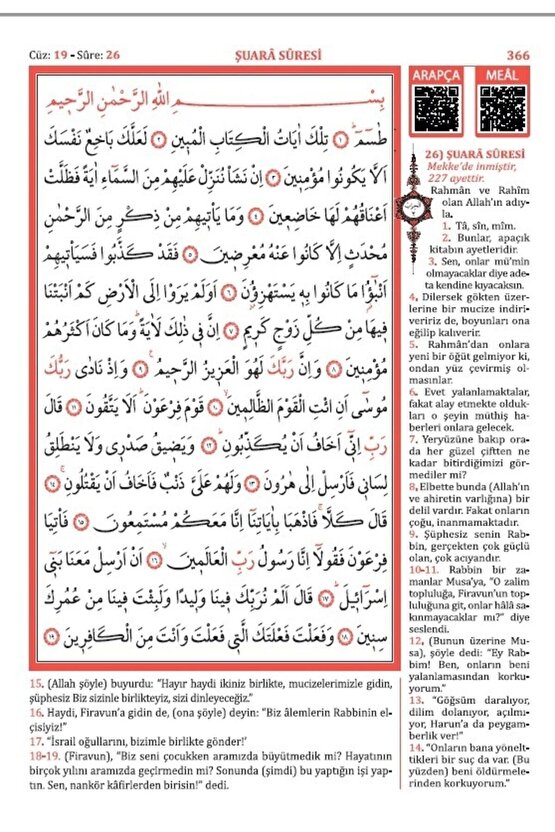 Cüz: 19 - Sûre: 26
ŞUARÂ SÛRESİ
366
بِسْــــــــــمِ اللّٰهِ الرَّحْمٰنِ الرَّحٖيمِ
طٰسٓمٓ ﴿١﴾ تِلْكَ اٰيَاتُ الْكِتَابِ الْمُبٖينِ ﴿٢﴾ لَعَلَّكَ بَاخِعٌ نَفْسَكَ
اَلَّا يَكُونُوا مُؤْمِنٖينَ ﴿٣﴾ اِنْ نَشَأْ نُنَزِّلْ عَلَيْهِمْ مِنَ السَّمَٓاءِ اٰيَةً فَظَلَّتْ
اَعْنَاقُهُمْ لَهَا خَاضِعٖينَ ﴿٤﴾ وَمَا يَأْتٖيهِمْ مِنْ ذِكْرٍ مِنَ الرَّحْمٰنِ
مُحْدَثٍ اِلَّا كَانُوا عَنْهُ مُعْرِضٖينَ ﴿٥﴾ فَقَدْ كَذَّبُوا فَسَيَأْتٖيهِمْ
اَنْبٰٓؤُا مَا كَانُوا بِهٖ يَسْتَهْزِؤُ۫نَ ﴿٦﴾ اَوَلَمْ يَرَوْا اِلَى الْاَرْضِ كَمْ اَنْبَتْنَا
فٖيهَا مِنْ كُلِّ زَوْجٍ كَرٖيمٍ ﴿٧﴾ اِنَّ فٖي ذٰلِكَ لَاٰيَةًؕ وَمَا كَانَ اَكْثَرُهُمْ
مُؤْمِنٖينَ ﴿٨﴾ وَاِنَّ رَبَّكَ لَهُوَ الْعَزٖيزُ الرَّحٖيمُ ﴿٩﴾ وَاِذْ نَادٰى رَبُّكَ
مُوسٰٓى اَنِ ائْتِ الْقَوْمَ الظَّالِمٖينَ ﴿١٠﴾ قَوْمَ فِرْعَوْنَؕ اَلَا يَتَّقُونَ ﴿١١﴾ قَالَ
رَبِّ اِنّٖٓي اَخَافُ اَنْ يُكَذِّبُونِؕ ﴿١٢﴾ وَيَضٖيقُ صَدْرٖي وَلَا يَنْطَلِقُ
لِسَانٖي فَاَرْسِلْ اِلٰى هٰرُونَ ﴿١٣﴾ وَلَهُمْ عَلَيَّ ذَنْبٌ فَاَخَافُ اَنْ يَقْتُلُونِۚ ﴿١٤﴾
قَالَ كَلَّاۚ فَاذْهَبَا بِاٰيَاتِنَٓا اِنَّا مَعَكُمْ مُسْتَمِعُونَ ﴿١٥﴾ فَأْتِيَا
فِرْعَوْنَ فَقُولَٓا اِنَّا رَسُولُ رَبِّ الْعَالَمٖينَۙ ﴿١٦﴾ اَنْ اَرْسِلْ مَعَنَا بَنٖٓي
اِسْرَٓائٖلَؕ ﴿١٧﴾ قَالَ اَلَمْ نُرَبِّكَ فٖينَا وَلٖيدًا وَلَبِثْتَ فٖينَا مِنْ عُمُرِكَ
سِنٖينَۙ ﴿١٨﴾ وَفَعَلْتَ فَعْلَتَكَ الَّتٖي فَعَلْتَ وَاَنْتَ مِنَ الْكَافِرٖينَ ﴿١٩﴾
ARAPÇA
MEÂL
26) ŞUARÂ SÛRESİ
Mekke'de inmiştir,
227 ayettir.
Rahmân ve Rahîm
olan Allah'ın adıy-
la.
1. Tâ, sîn, mîm.
2. Bunlar, apaçık
kitabın ayetleridir.
3. Sen, onlar mü'min
olmayacaklar diye ade-
ta kendine kıyacaksın.
4. Dilersek gökten üzer-
lerine bir mucize indiri-
veririz de, boyunları ona
eğilip kalıverir.
5. Rahmân'dan onlara
yeni bir öğüt gelmiyor ki,
ondan yüz çevirmiş ol-
masınlar.
6. Evet yalanlamaktalar,
fakat alay etmekte olduk-
ları o şeyin müthiş ha-
berleri onlara gelecek.
7. Yeryüzüne bakıp ora-
da her güzel çiftten ne
kadar bitirdiğimizi gör-
mediler mi?
8. Elbette bunda (Allah'ın
ve ahiretin varlığına) bir
delil vardır. Fakat onların
çoğu, inanmamaktadır.
9. Şüphesiz senin Rab-
bin, gerçekten çok güçlü
olan, çok acıyandır.
10-11. Rabbin bir za-
manlar Musa'ya, "O zalim
topluluğa, Firavun'un top-
luluğuna git, onlar hâlâ sa-
kınmayacaklar mı?" diye
seslendi.
12. (Bunun üzerine Mu-
sa), şöyle dedi: "Ey Rab-
bim! Ben, onların beni
yalanlamasından korku-
yorum."
13. "Göğsüm daralıyor,
dilim dolanıyor, açılmı-
yor, Harun'a da peygam-
berlik ver!"
14. "Onların bana yönelt-
tikleri bir suç da var. (Bu
yüzden) beni öldürmele-
rinden korkuyorum."
15. (Allah şöyle) buyurdu: "Hayır haydi ikiniz birlikte, mucizelerimizle gidin,
şüphesiz Biz sizinle birlikteyiz, sizi dinleyeceğiz."
16. Haydi, Firavun'a gidin de, (ona şöyle) deyin: "Biz âlemlerin Rabbinin el-
çisiyiz!"
17. "İsrail oğullarını, bizimle birlikte gönder!'
18-19. (Firavun), "Biz seni çocukken aramızda büyütmedik mi? Hayatının
birçok yılını aramızda geçirmedin mi? Sonunda (şimdi) bu yaptığın işi yap-
tın. Sen, nankör kâfirlerden birisin!" dedi.